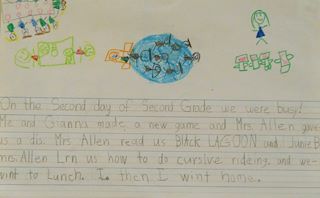 On the Second day of Second Grade we were busy!
Me and Gianna made a new game and Mrs. Allen gave
us a dis. Mrs. Allen read us BlACK LAGOON and JunieB
mrs. Allen Lrn us how to do cursive rideing. and we-
wint to Lunch. I then I wint home.